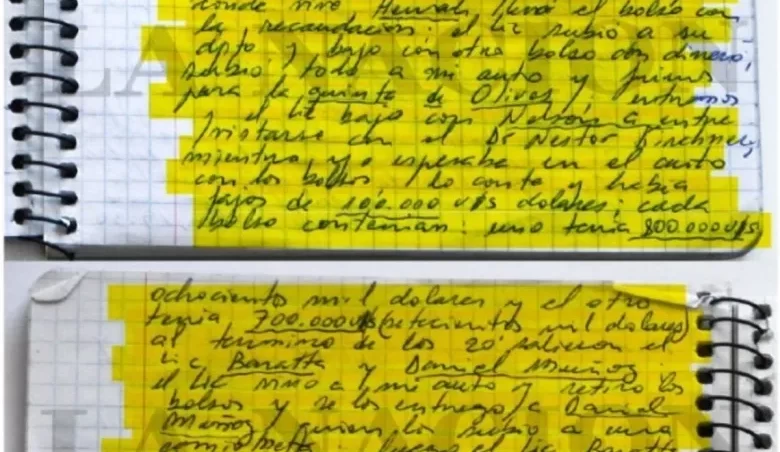 donde vive Hernan llevo el bolso con
la recaudacion: el Lic subio a su
dpto y bajo con otro bolso con dinero;
subio todo a mi auto y fuimos
para la quinta de Olivos, entramos
y el Lic bajo con Nelson a entre
vistarse con el Dr Nestor Kirchner,
mientras yo esperaba en el auto
con los bolsos, lo conte y habia
fajos de 100.000 U$S dolares; cada
bolso contenian: uno tenia 800.000 U$S
ochocientos mil dolares y el otro
tenia 700.000 U$S (setecientos mil dolares)
al termino de los 20' salieron el
Lic Baratta y Daniel Muñoz.
el Lic vino a mi auto y retiro los
bolsos y se los entrego a Daniel
Muñoz, quien los subio a una
camioneta. luego el Lic Baratta
LA NACION
LA NACION